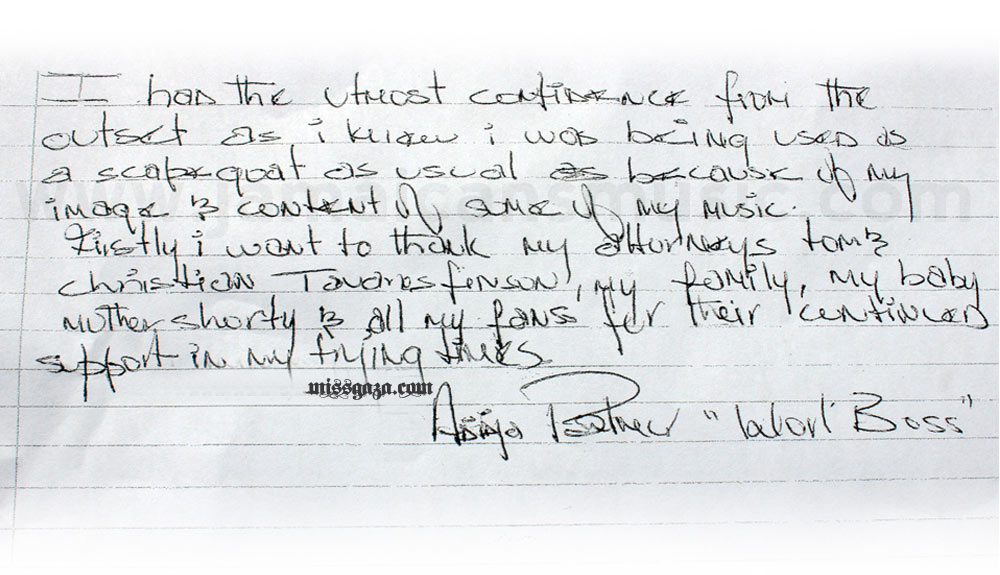 I had the utmost confidence from the
outset as i knew i was being used as
a scapegoat as usual as because of my
image & content of some of my music.
Firstly i want to thank my attorneys tom &
christian Tavares finson, my family, my baby
mother shorty & all my fans for their continued
support in my trying times
missgaza.com
Adija Palmer "Worl' Boss"
www.jamaicansmusic.com